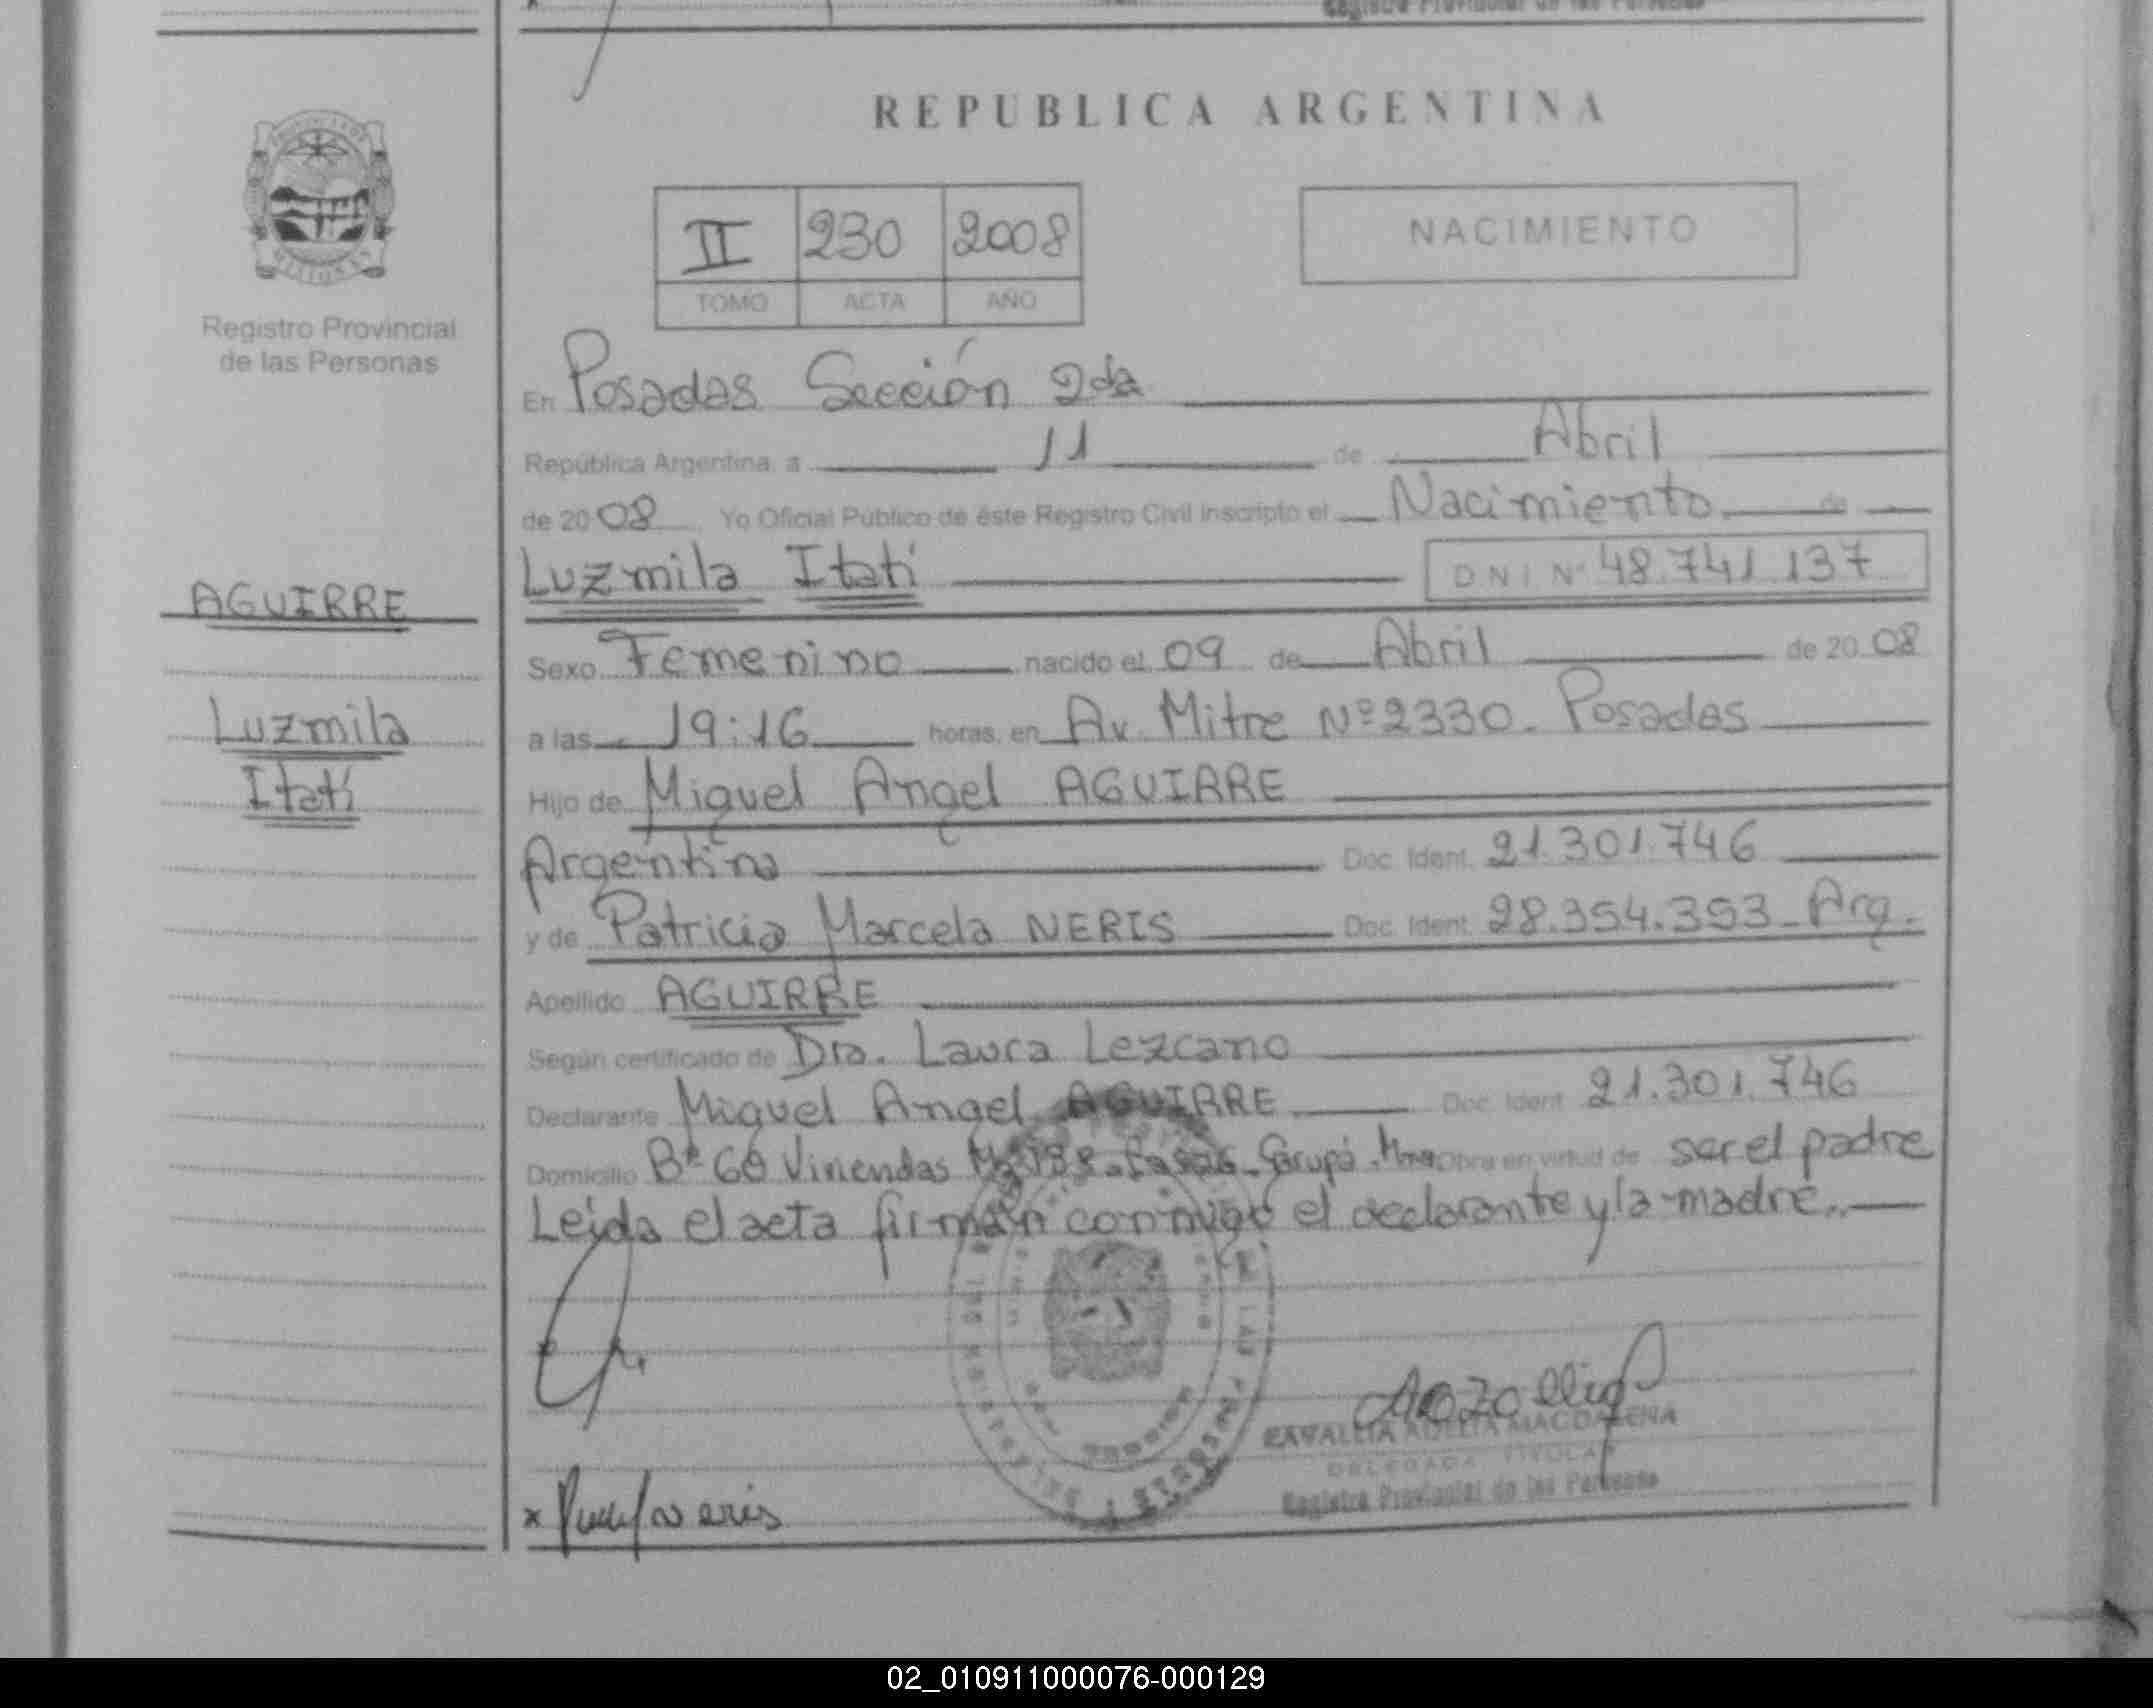 REPUBLICA ARGENTINA
II 230 2008
TOMO ACTA AÑO
NACIMIENTO
MISIONES
Registro Provincial
de las Personas
En Posadas Sección 2da
República Argentina, a 11 de Abril
de 2008 Yo Oficial Público de éste Registro Civil inscripto el Nacimiento de
Luzmila Itatí D N I Nº 48.741.137
AGUIRRE
Luzmila
Itatí
Sexo Femenino nacido el 09 de Abril de 2008
a las 19:16 horas, en Av. Mitre Nº 2330. Posadas
Hijo de Miguel Angel AGUIRRE
Argentina Doc. Ident. 21.301.746
y de Patricia Marcela NERIS Doc. Ident. 28.354.353 - Arg.
Apellido AGUIRRE
Según certificado de Dra. Laura Lezcano
Declarante Miguel Angel AGUIRRE Doc. Ident. 21.301.746
Domicilio Bº 60 Viviendas Garupá. Mnes Obra en virtud de ser el padre
Leida el acta firman conmigo el declarante y la madre.
MAGDALENA
DELEGADA TITULAR
Registro Provincial de las Personas
02_010911000076-000129